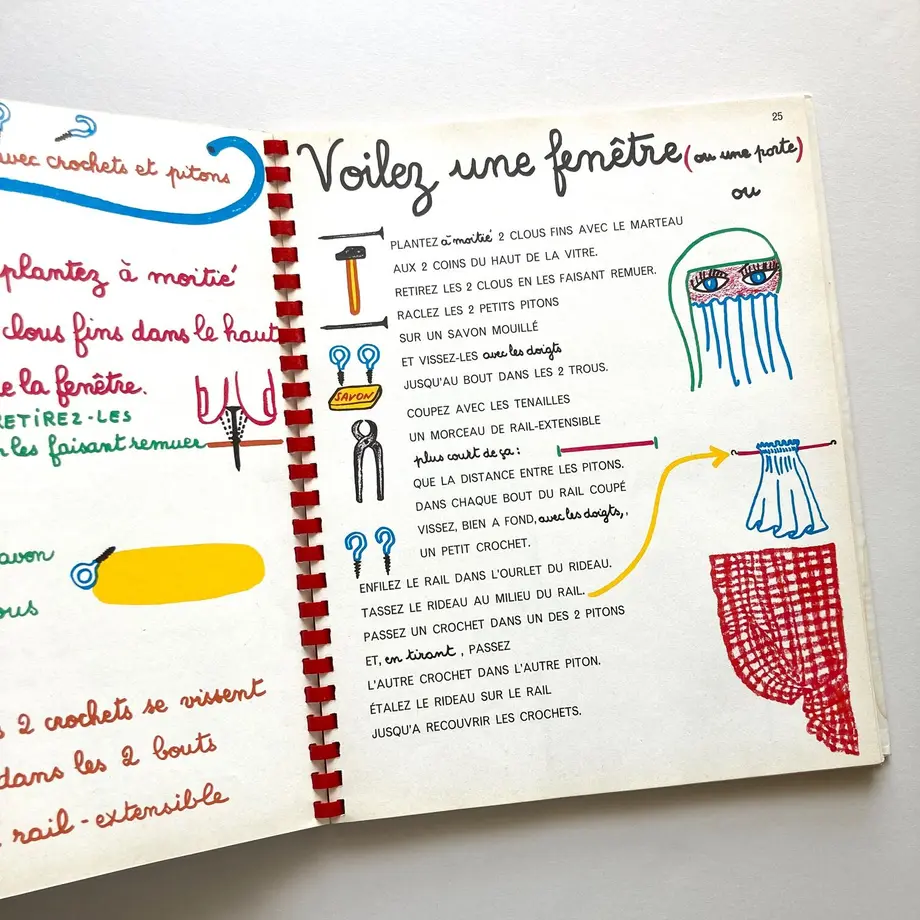 avec crochets et pitons
plantez à moitié
clous fins dans le haut
de la fenêtre.
RETIREZ-LES
en les faisant remuer
savon
2 crochets se vissent
dans les 2 bouts
rail-extensible
25
Voilez une fenêtre (ou une porte)
ou
PLANTEZ à moitié 2 CLOUS FINS AVEC LE MARTEAU
AUX 2 COINS DU HAUT DE LA VITRE.
RETIREZ LES 2 CLOUS EN LES FAISANT REMUER.
RACLEZ LES 2 PETITS PITONS
SUR UN SAVON MOUILLÉ
ET VISSEZ-LES avec les doigts
JUSQU'AU BOUT DANS LES 2 TROUS.
SAVON
COUPEZ AVEC LES TENAILLES
UN MORCEAU DE RAIL-EXTENSIBLE
plus court de ça :
QUE LA DISTANCE ENTRE LES PITONS.
DANS CHAQUE BOUT DU RAIL COUPÉ
VISSEZ, BIEN A FOND, avec les doigts,,
UN PETIT CROCHET.
ENFILEZ LE RAIL DANS L'OURLET DU RIDEAU.
TASSEZ LE RIDEAU AU MILIEU DU RAIL.
PASSEZ UN CROCHET DANS UN DES 2 PITONS
ET, en tirant, PASSEZ
L'AUTRE CROCHET DANS L'AUTRE PITON.
ÉTALEZ LE RIDEAU SUR LE RAIL
JUSQU'A RECOUVRIR LES CROCHETS.